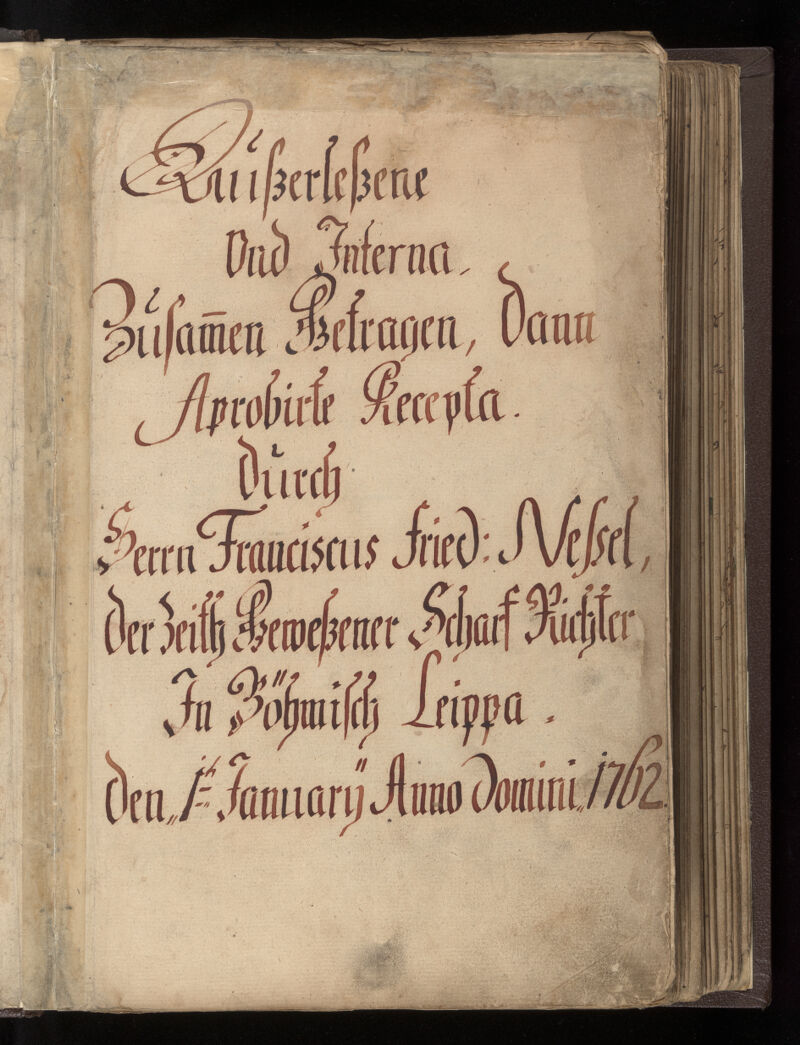 Außerleßene
Vnd Interna.
Zusam̅en Getragen, Dann
Aprobirte Recepta.
Durch
Herrn Franciscus Fried: Neßel,
Der Zeith Geweßener Scharf Richter
In Böhmisch Leippa.
Den„ 1t Januarÿ Anno Domini„ 1762.